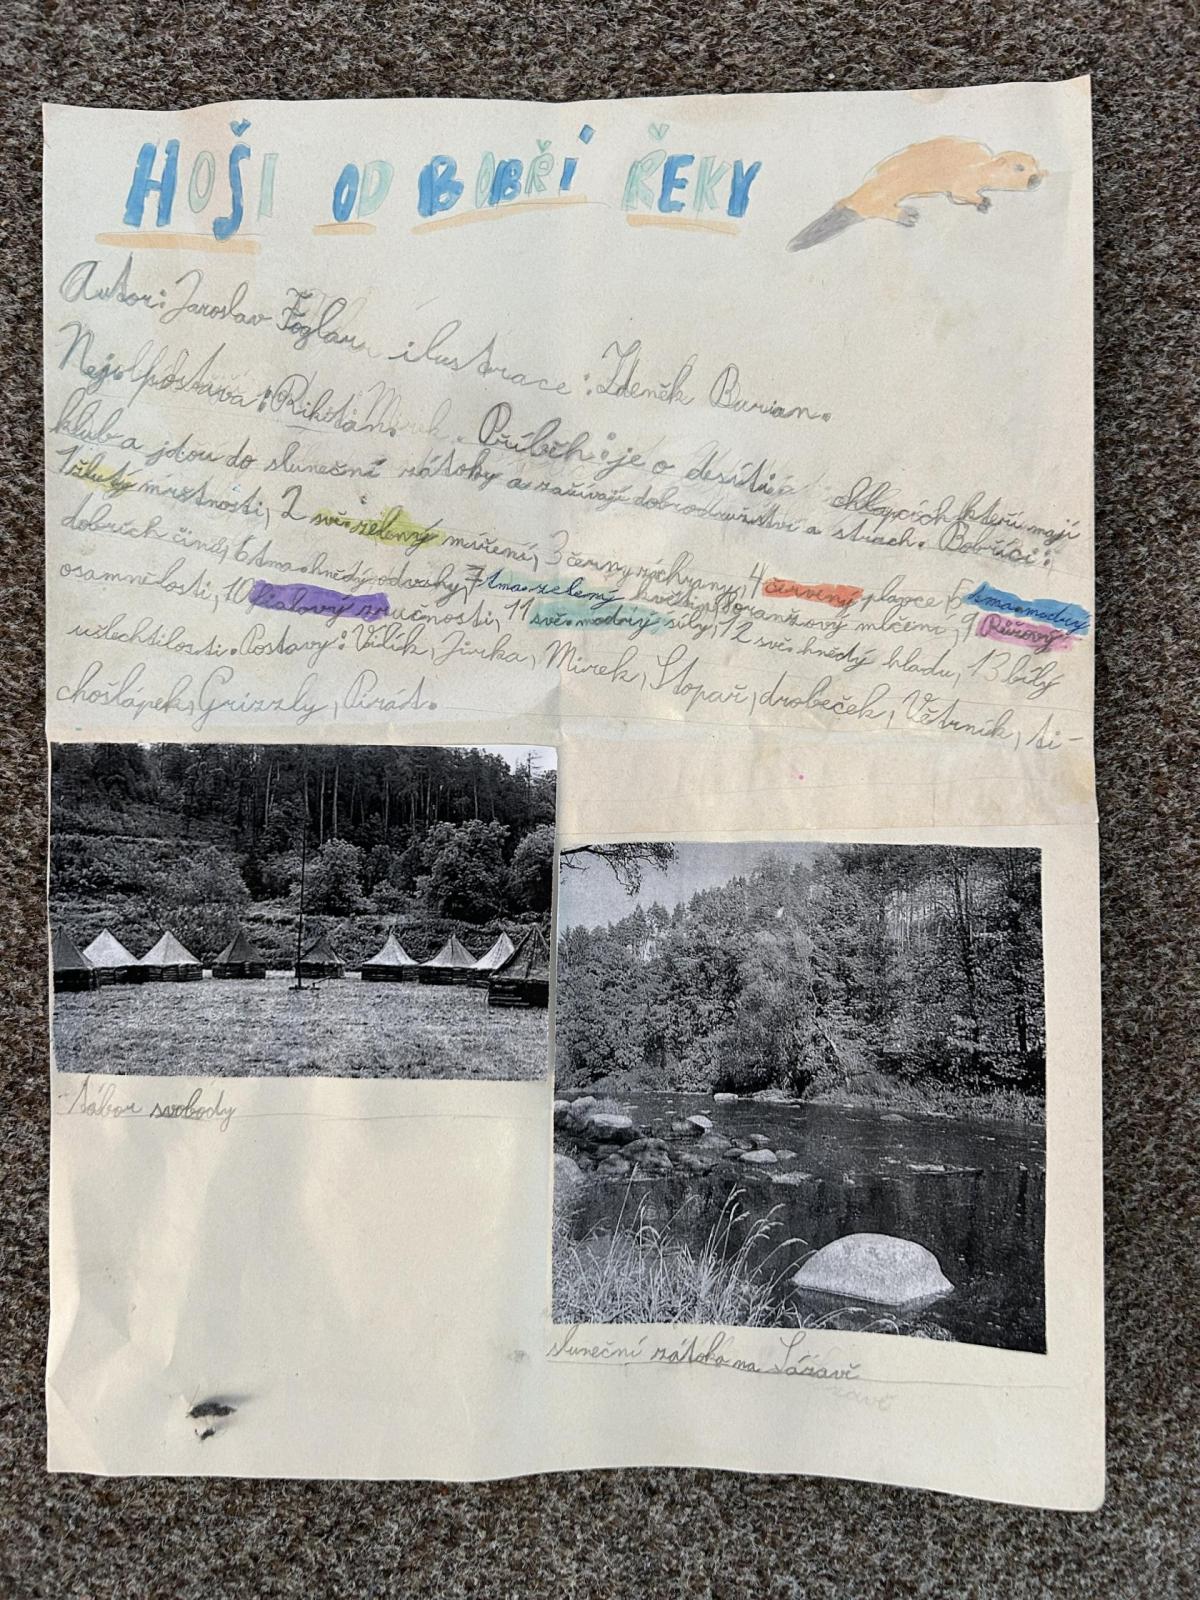 HOŠI OD BOBŘÍ ŘEKY
Autor: Jaroslav Foglar ilustrace: Zdeněk Burian.
Nejol postava: Rikitan. Příběh: je o desíti chlapcích kteří mají
klub a jdou do sluneční zátoky a zažívají dobrodružství a strach. Bobříci:
1 žlutý mrštnosti, 2 svě. zelený míření, 3 černý záchrany, 4 červený plavce 5 tma. modrý
dobrích činů, 6 tma. hnědý odvahy, 7 tma. zelený květin, 8 oranžový mlčení, 9 Růžový
osamnělosti, 10 fialový zručnosti, 11 svě. modrý síly, 12 svě. hnědý hladu, 13 bílý
ušlechtilosti. Postavy: Vilík, Jirka, Mirek, Stopař, drobeček, Větrník, ti-
chošlápek, Grizzly, Pirát.
tábor svobody
sluneční zátoka na Sázavě